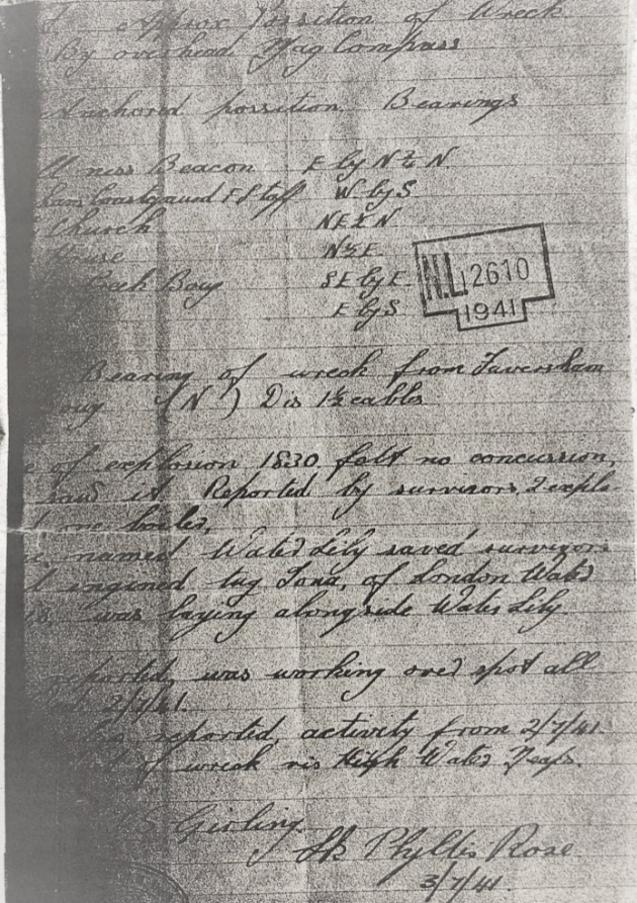 Approx Possition of Wreck
By overhead Mag Compass
Anchored possition Bearings
ness Beacon E by N ½ N
ham Coastguard F Staff W. by S
Church NE ½ N
House N ½ E
Creek Bouy SE by E
E by S
N.L. 12610
1941
Bearing of wreck from Faversham
ouy (N) Dis 1½ cables
of explosion 1830 felt no concussion,
saw it Reported by survivors, 2 explo
one boiler,
named Water Lily saved survivors
engined tug Iona, of London Water
was laying alongside Water Lily
ported, was working over spot all
2/7/41.
reported, activity from 2/7/41.
of wreck vis High Water Neaps.
S Girling.
Sk Phyllis Rose
3/7/41.